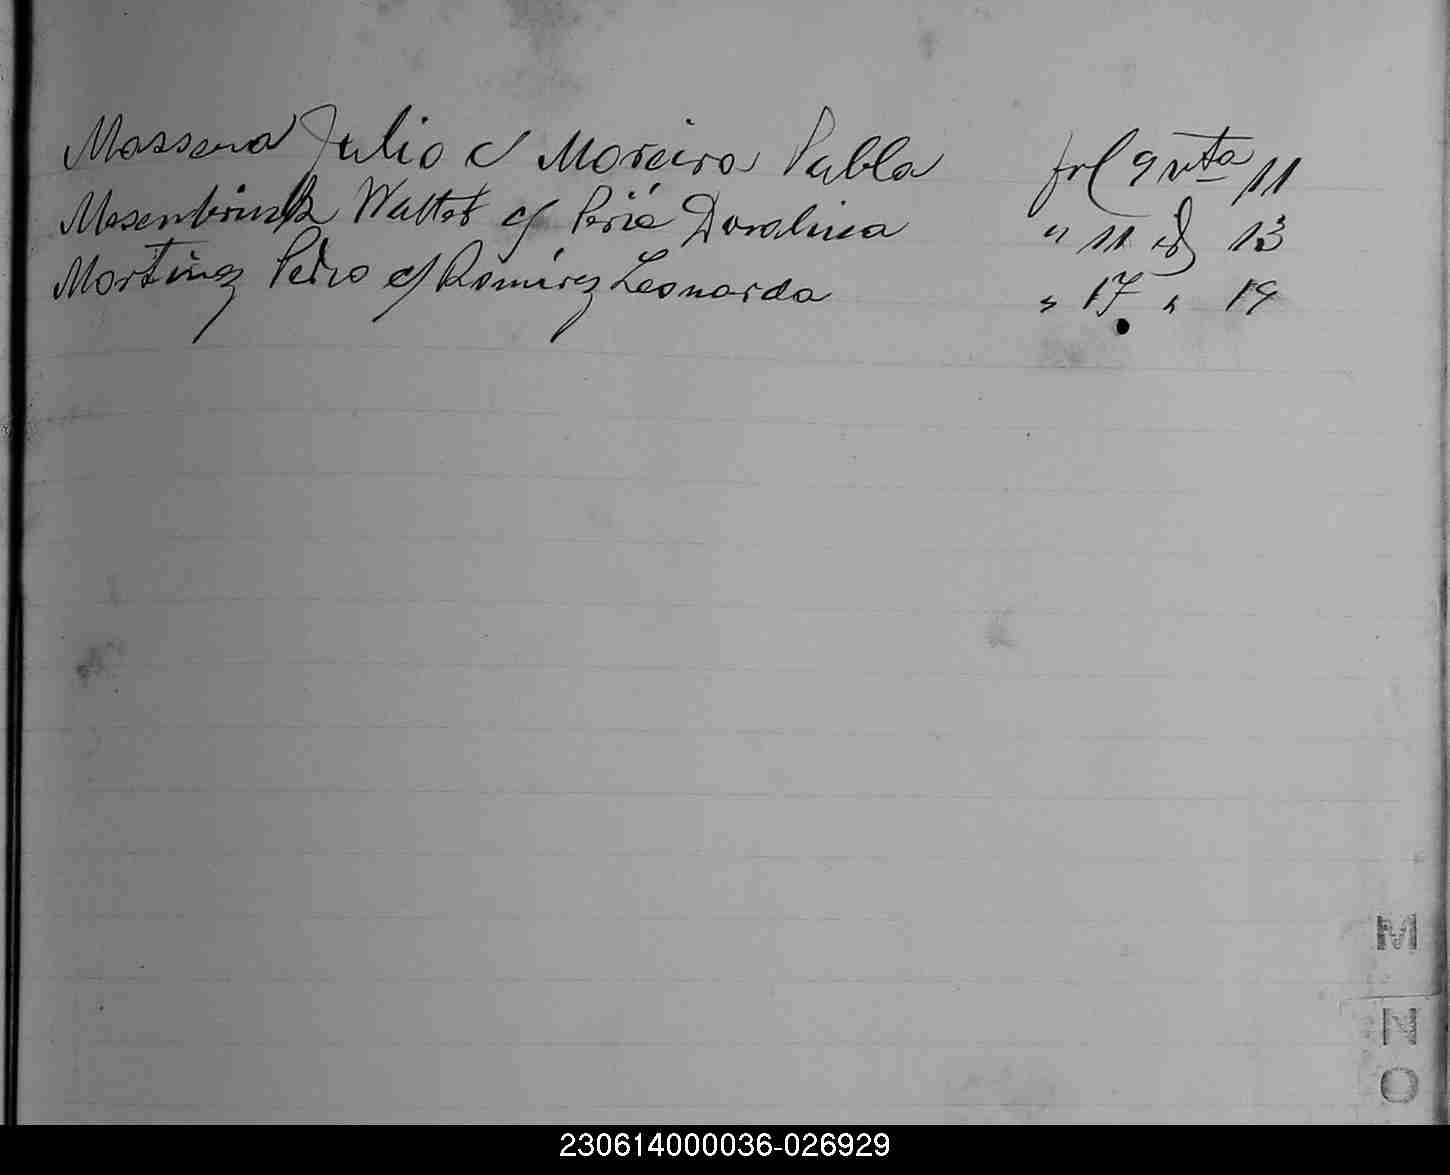 Massera Julio c/ Moreira Pabla fol 9 vta 11
Mesenbrink Walter c/ Perié Doralisa " 11 id 13
Martinez Pedro c/ Ramírez Leonarda " 17 " 19
M
N
O
230614000036-026929